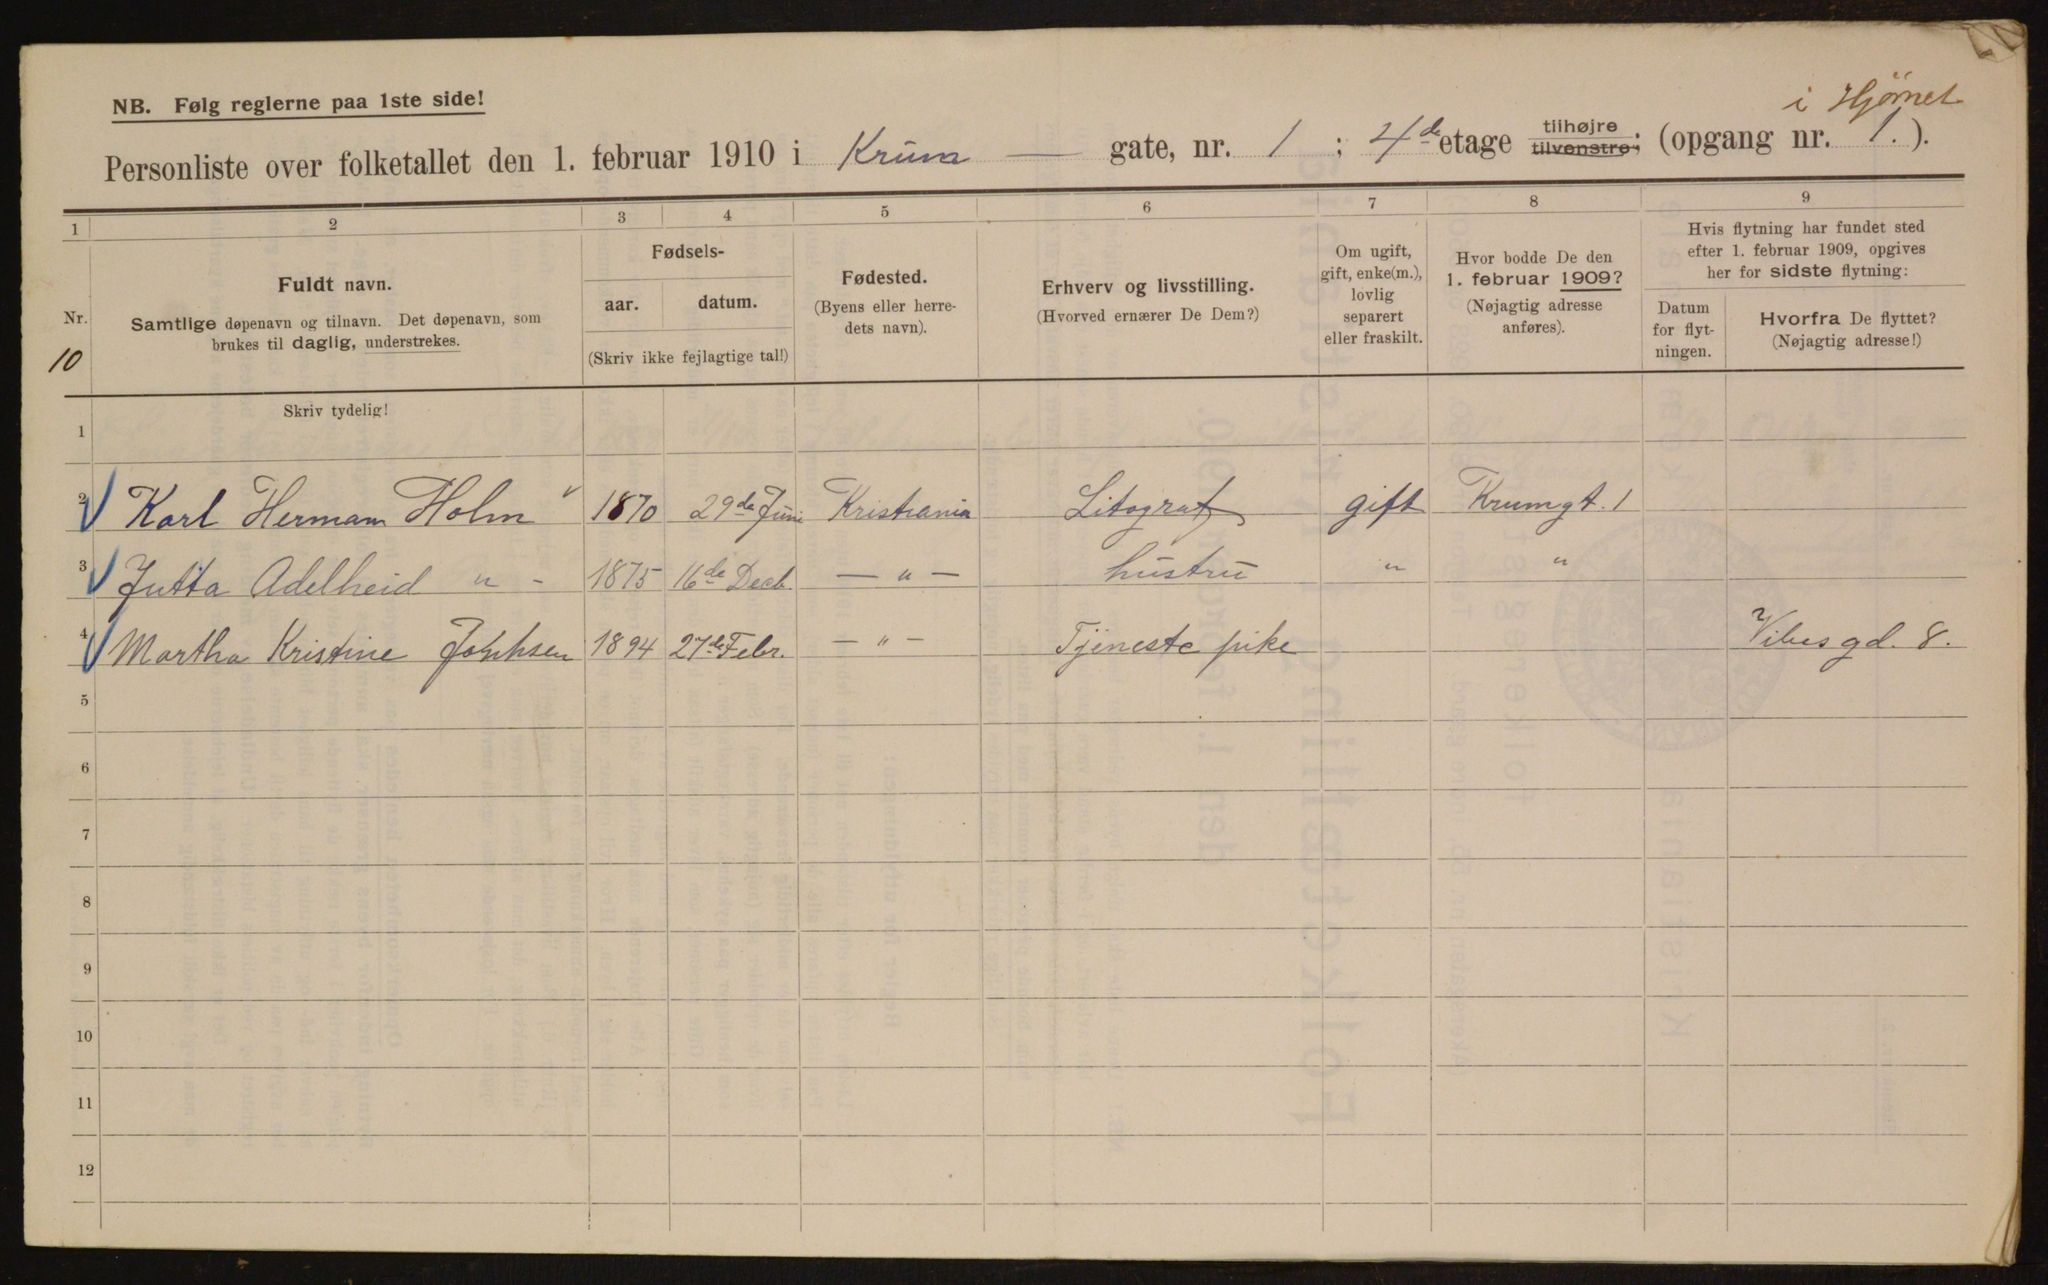 i Hjørnet
NB. Følg reglerne paa 1ste side!
Personliste over folketallet den 1. februar 1910 i Krum — gate, nr. 1 ; 4de etage tilhøjre tilvenstre; (opgang nr. 1.).
1 2 3 4 5 6 7 8 9
Nr.
10
Fuldt navn.
Samtlige døpenavn og tilnavn. Det døpenavn, som
brukes til daglig, understrekes.
Fødsels-
aar. datum.
(Skriv ikke fejlagtige tal!)
Fødested.
(Byens eller herre-
dets navn).
Erhverv og livsstilling.
(Hvorved ernærer De Dem?)
Om ugift,
gift, enke(m.),
lovlig
separert
eller fraskilt.
Hvor bodde De den
1. februar 1909?
(Nøjagtig adresse
anføres).
Hvis flytning har fundet sted
efter 1. februar 1909, opgives
her for sidste flytning:
Datum
for flyt-
ningen.
Hvorfra De flyttet?
(Nøjagtig adresse!)
Skriv tydelig!
1
2 Karl Herman Holm 1870 29de Juni Kristiania Litograf gift Krumgt. 1
3 Jutta Adelheid " - 1875 16de Decb. — " — hustru " "
4 Martha Kristine 1894 27de Febr. — " — Tjeneste pike Vibesgd. 8.
5
6
7
8
9
10
11
12